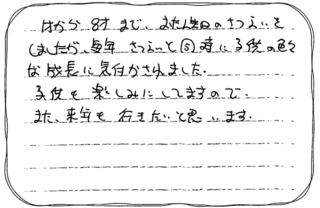 1才から8才まで、お誕生日のさつえいを
しましたが、毎年さつえいと同時に子供の色々
な成長に気付かされました。
子供も楽しみにしてますので、
また、来年も行きたいと思います。